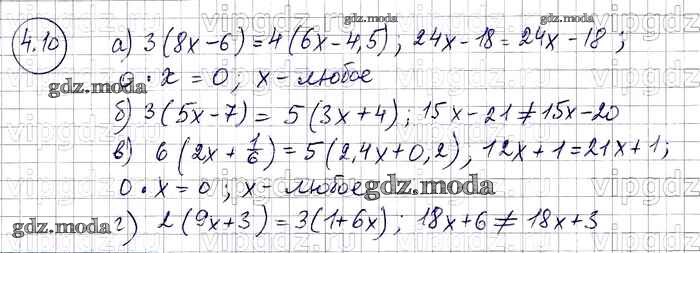 gdz.moda gdz.moda
4.10 а) 3(8x-6)=4(6x-4,5); 24x-18=24x-18;
gdz.moda 0·x=0; x-любое
б) 3(5x-7)=5(3x+4); 15x-21≠15x-20
в) 6(2x+1/6)=5(2,4x+0,2), 12x+1=21x+1;
0·x=0; x-любое gdz.moda
gdz.moda г) 2(9x+3)=3(1+6x); 18x+6≠18x+3